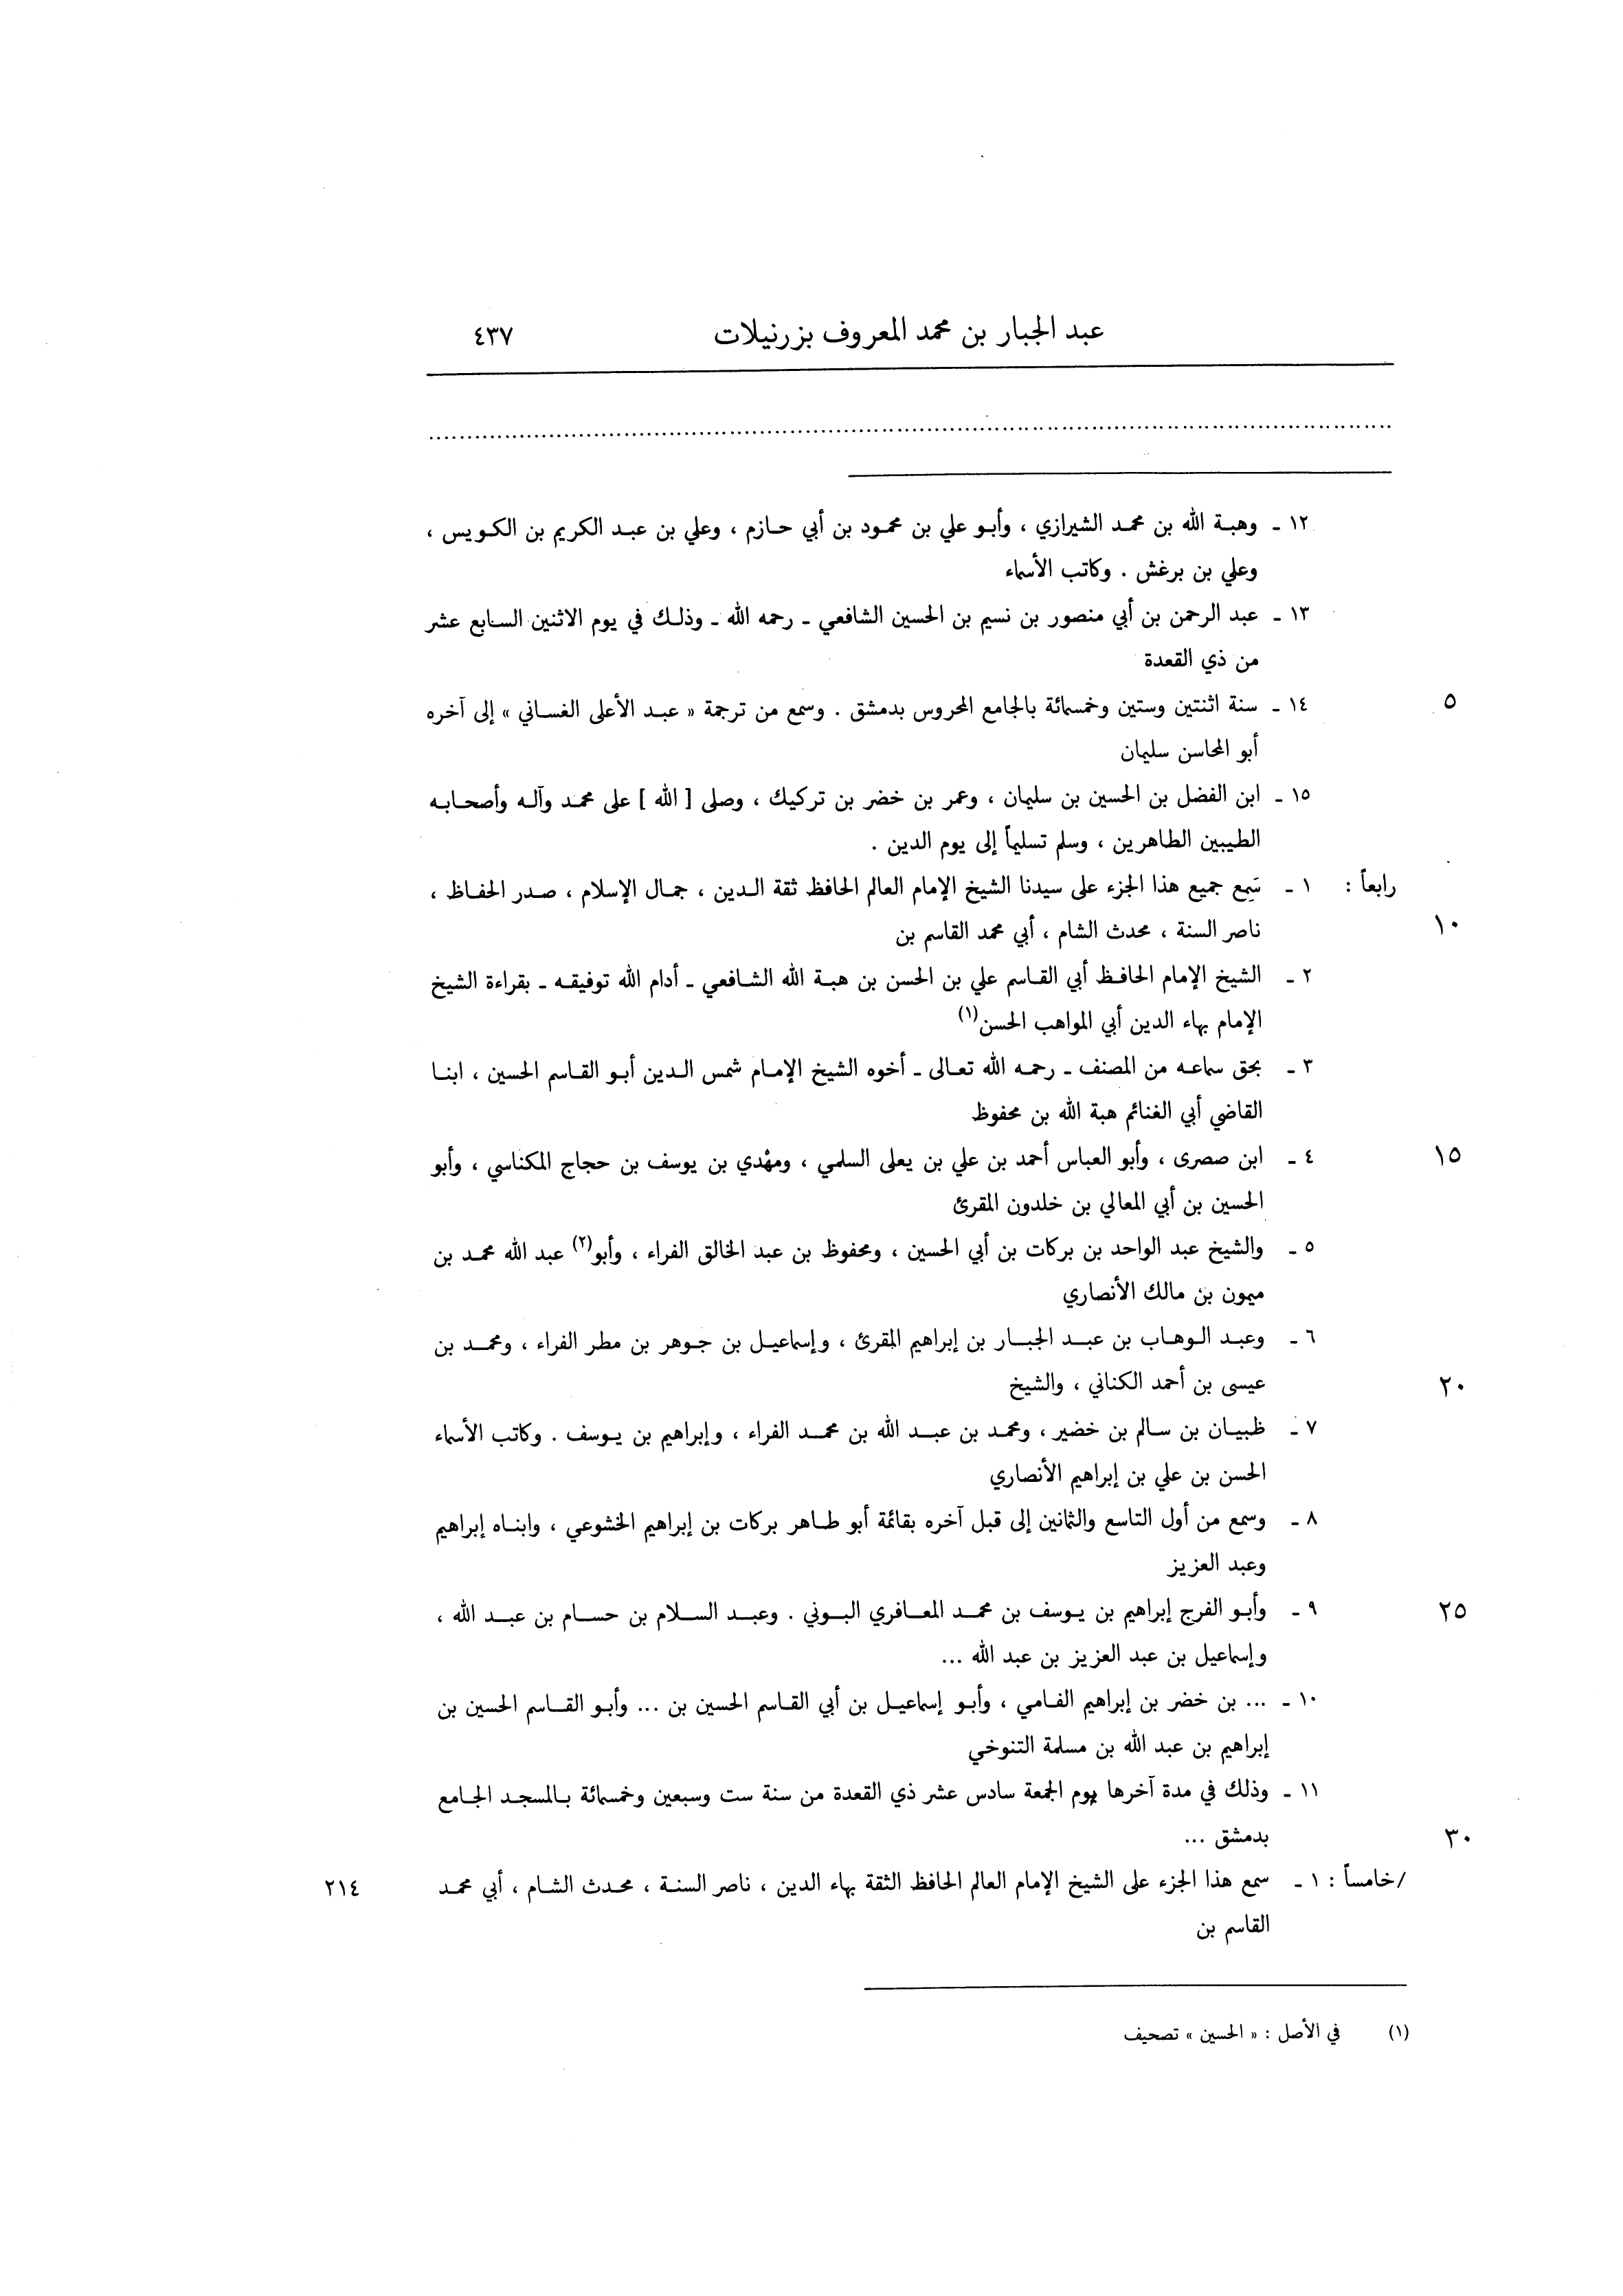 عبد الجبار بن محمد المعروف بزرنيلات ٤٣٧
١٢ ـ وهبة الله بن محمد الشيرازي ، وأبو علي بن محمود بن أبي حازم ، وعلي بن عبد الكريم بن الكويس ،
وعلي بن برغش . وكاتب الأسماء
١٣ ـ عبد الرحمن بن أبي منصور بن نسيم بن الحسين الشافعي ـ رحمه الله ـ وذلك في يوم الاثنين السابع عشر
من ذي القعدة
١٤ ـ سنة اثنتين وستين وخمسمائة بالجامع المحروس بدمشق . وسمع من ترجمة « عبد الأعلى الغساني » إلى آخره ٥
أبو المحاسن سليمان
١٥ ـ ابن الفضل بن الحسين بن سليمان ، وعمر بن خضر بن تركيك ، وصلى [ الله ] على محمد وآله وأصحابه
الطيبين الطاهرين ، وسلم تسليماً إلى يوم الدين .
رابعاً : ١ ـ سَمِع جميع هذا الجزء على سيدنا الشيخ الإمام العالم الحافظ ثقة الدين ، جمال الإسلام ، صدر الحفاظ ،
ناصر السنة ، محدث الشام ، أبي محمد القاسم بن ١٠
٢ ـ الشيخ الإمام الحافظ أبي القاسم علي بن الحسن بن هبة الله الشافعي ـ أدام الله توفيقه ـ بقراءة الشيخ
الإمام بهاء الدين أبي المواهب الحسن(١)
٣ ـ بحق سماعه من المصنف ـ رحمه الله تعالى ـ أخوه الشيخ الإمام شمس الدين أبو القاسم الحسين ، ابنا
القاضي أبي الغنائم هبة الله بن محفوظ
٤ ـ ابن صصرى ، وأبو العباس أحمد بن علي بن يعلى السلمي ، ومهْدي بن يوسف بن حجاج المكناسي ، وأبو ١٥
الحسين بن أبي المعالي بن خلدون المقرئ
٥ ـ والشيخ عبد الواحد بن بركات بن أبي الحسين ، ومحفوظ بن عبد الخالق الفراء ، وأبو(٢) عبد الله محمد بن
ميمون بن مالك الأنصاري
٦ ـ وعبد الوهاب بن عبد الجبار بن إبراهيم المقرئ ، وإسماعيل بن جوهر بن مطر الفراء ، ومحمد بن
عيسى بن أحمد الكناني ، والشيخ ٢٠
٧ ـ ظبيان بن سالم بن خضير ، ومحمد بن عبد الله بن محمد الفراء ، وإبراهيم بن يوسف . وكاتب الأسماء
الحسن بن علي بن إبراهيم الأنصاري
٨ ـ وسمع من أول التاسع والثمانين إلى قبل آخره بقائمة أبو طاهر بركات بن إبراهيم الخشوعي ، وابناه إبراهيم
وعبد العزيز
٩ ـ وأبو الفرج إبراهيم بن يوسف بن محمد المعافري البوني . وعبد السلام بن حسام بن عبد الله ، ٢٥
وإسماعيل بن عبد العزيز بن عبد الله ...
١٠ ـ ... بن خضر بن إبراهيم الفامي ، وأبو إسماعيل بن أبي القاسم الحسين بن ... وأبو القاسم الحسين بن
إبراهيم بن عبد الله بن مسلمة التنوخي
١١ ـ وذلك في مدة آخرها يوم الجمعة سادس عشر ذي القعدة من سنة ست وسبعين وخمسمائة بالمسجد الجامع
بدمشق ... ٣٠
/خامساً : ١ ـ سمع هذا الجزء على الشيخ الإمام العالم الحافظ الثقة بهاء الدين ، ناصر السنة ، محدث الشام ، أبي محمد ٢١٤
القاسم بن
(١) في الأصل : « الحسين » تصحيف